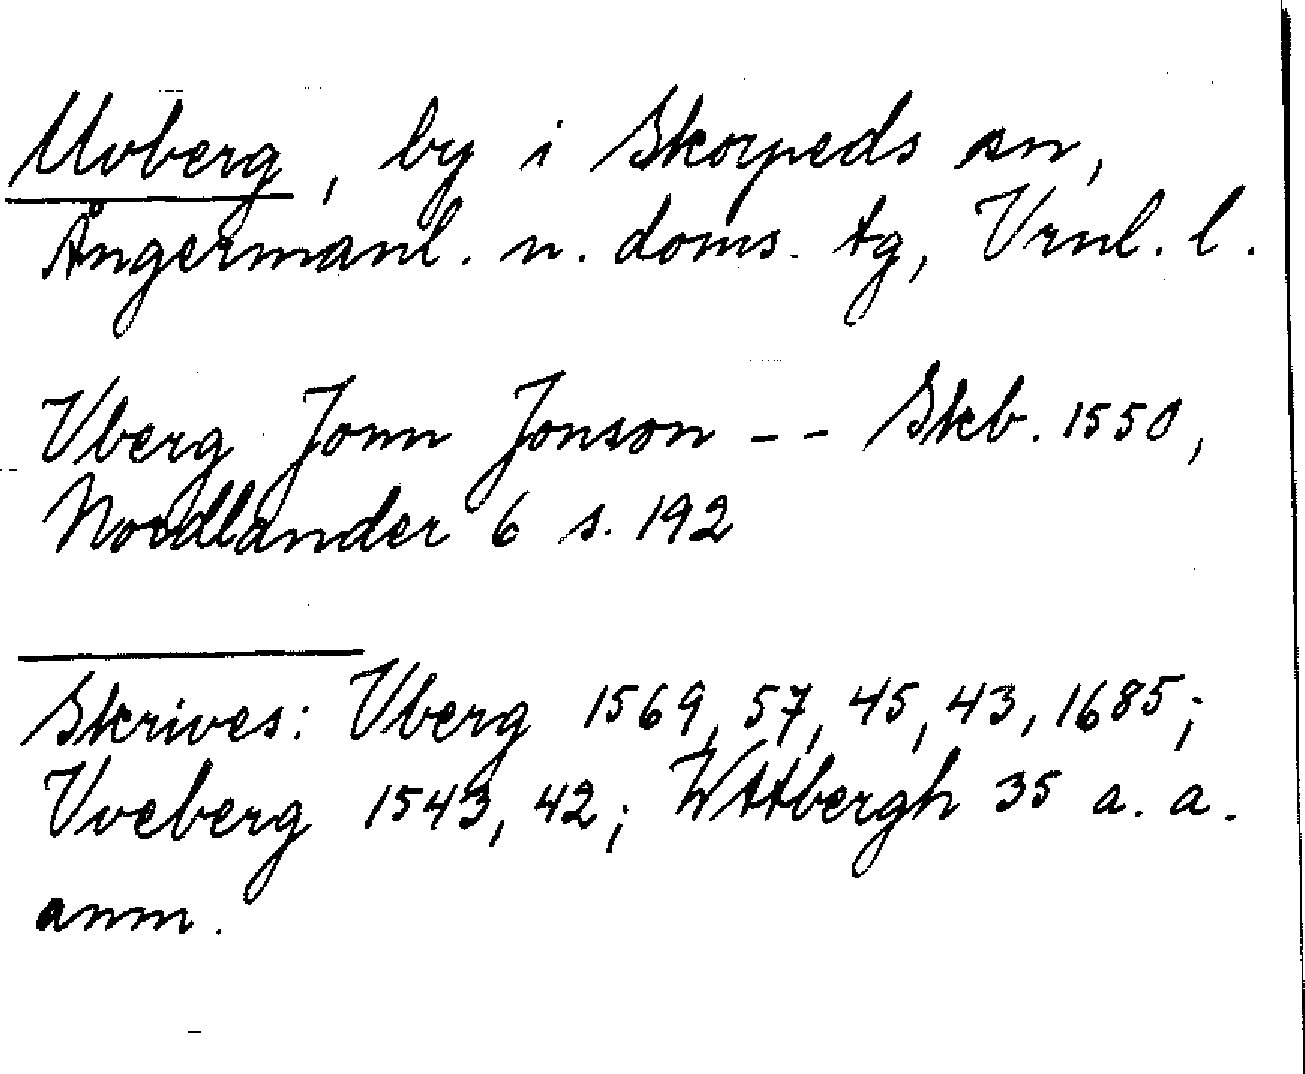 Uvberg, by i Skorpeds sn,
Ångermanl. n. doms. tg, Vrnl. l.
Vberg Jonn Jonson -- Skb. 1550,
Nordlander 6 s. 192
Skrives: Vberg 1569, 57, 45, 43, 1685;
Vveberg 1543, 42; Wttbergh 35 a. a.
anm.